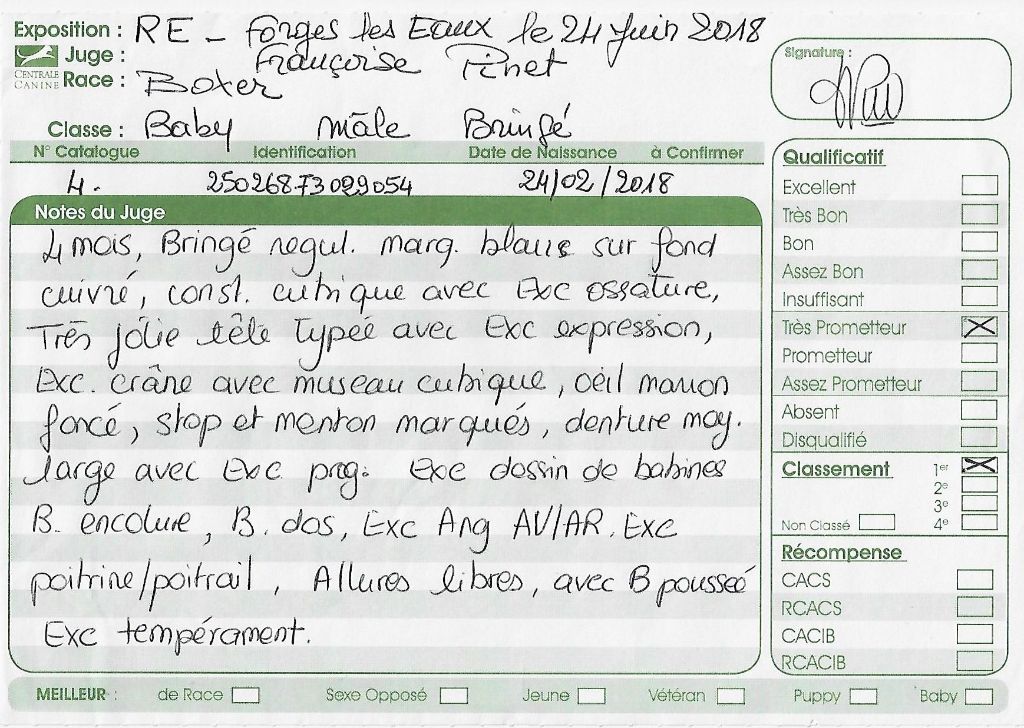 Exposition : RE - Forges les Eaux le 24 Juin 2018
Signature :
Juge : Françoise Pinet
CENTRALE CANINE
Race : Boxer
Classe : Baby mâle Bringé
N° Catalogue Identification Date de Naissance à Confirmer
4. 25026873029054 24/02/2018
Notes du Juge
4 mois, Bringé regul. marq. blancs sur fond
cuivré, const. cubique avec Exc ossature,
Très jolie tête typée avec Exc expression,
Exc. crâne avec museau cubique, oeil marron
foncé, stop et menton marqués, denture moy.
large avec Exc prog. Exc dessin de babines
B. encolure, B. dos, Exc Ang AV/AR. Exc
poitrine/poitrail, Allures libres, avec B pousseé
Exc tempérament.
Qualificatif
Excellent
Très Bon
Bon
Assez Bon
Insuffisant
Très Prometteur X
Prometteur
Assez Prometteur
Absent
Disqualifié
Classement 1er X
2e
3e
Non Classé 4e
Récompense
CACS
RCACS
CACIB
RCACIB
MEILLEUR : de Race Sexe Opposé Jeune Vétéran Puppy Baby